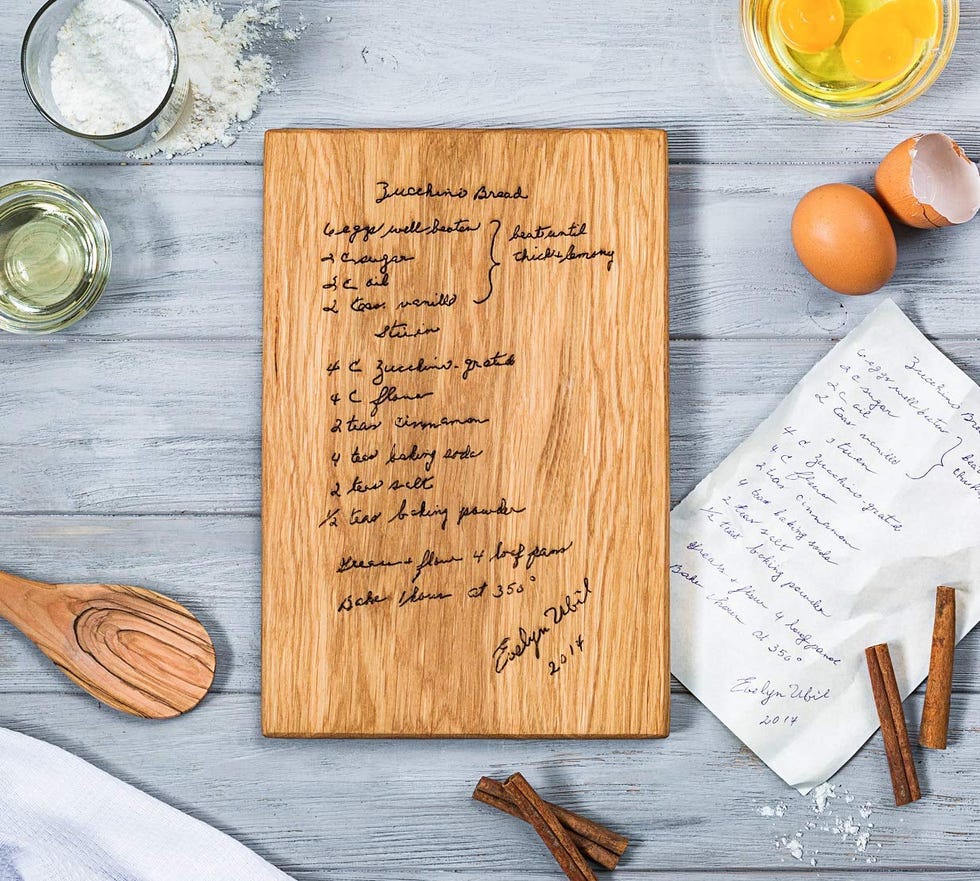 Zucchini Bread
6 eggs well beaten } beat until
2 C sugar thick & lemony
2 C oil
2 teas. vanilla
Stir in
4 C Zucchini - grated
4 C flour
2 teas cinnamon
4 teas baking soda
2 teas salt
1/2 teas baking powder
Grease + flour 4 loaf pans
Bake 1 hour at 350°
Evelyn Ubil
2014
Zucchini Bread
6 eggs well beaten } beat
2 C sugar
2 C oil
2 teas vanilla
Stir in
4 C Zucchini grated
4 C flour
2 teas cinnamon
4 teas baking soda
2 teas salt
1/2 teas baking powder
Grease + flour 4 loaf pans
Bake 1 hour at 350°
Evelyn Ubil
2014